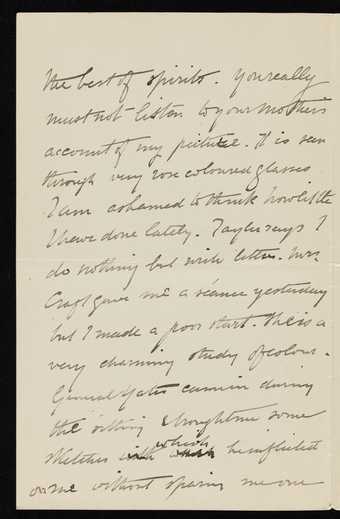 the best of spirits. You really
must not listen to your mother's
account of my picture. It is seen
through very rose coloured glasses.
I am ashamed to think how little
I have done lately. Taylor says I
do nothing but write letters. Mrs.
Craft gave me a séance yesterday
but I made a poor start. She is a
very charming study of colour.
General Yates came in during
the sitting & brought me some
sketches which he inflicted
on me without sparing me one